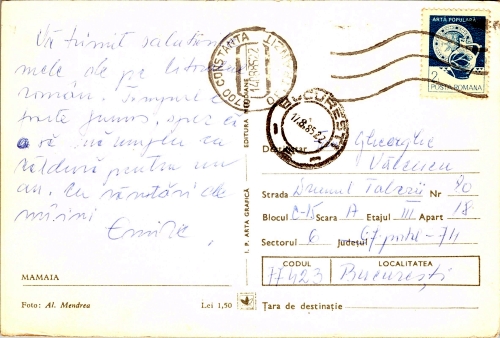 Vă trimit salutările
mele de pe litoralul
român. Timpul e
foarte frumos, sper că
o să vă umplu cu
căldură pentru un
an. Cu sărutări de
mîini
MAMAIA
Foto: Al. Mendrea
Lei 1,50
I. P. ARTA GRAFICĂ
EDITURA MERIDIANE
CONSTANȚA
14.8.85
BUCUREȘTI
17.8.85.22
ARTĂ POPULARĂ
2
POSTA ROMANA
Destinatar Gheorghe
Strada Drumul Taberii Nr 80
Blocul C-15 Scara A Etajul III Apart 18
Sectorul 6 Județul
CODUL LOCALITATEA
77423 București
Țara de destinație